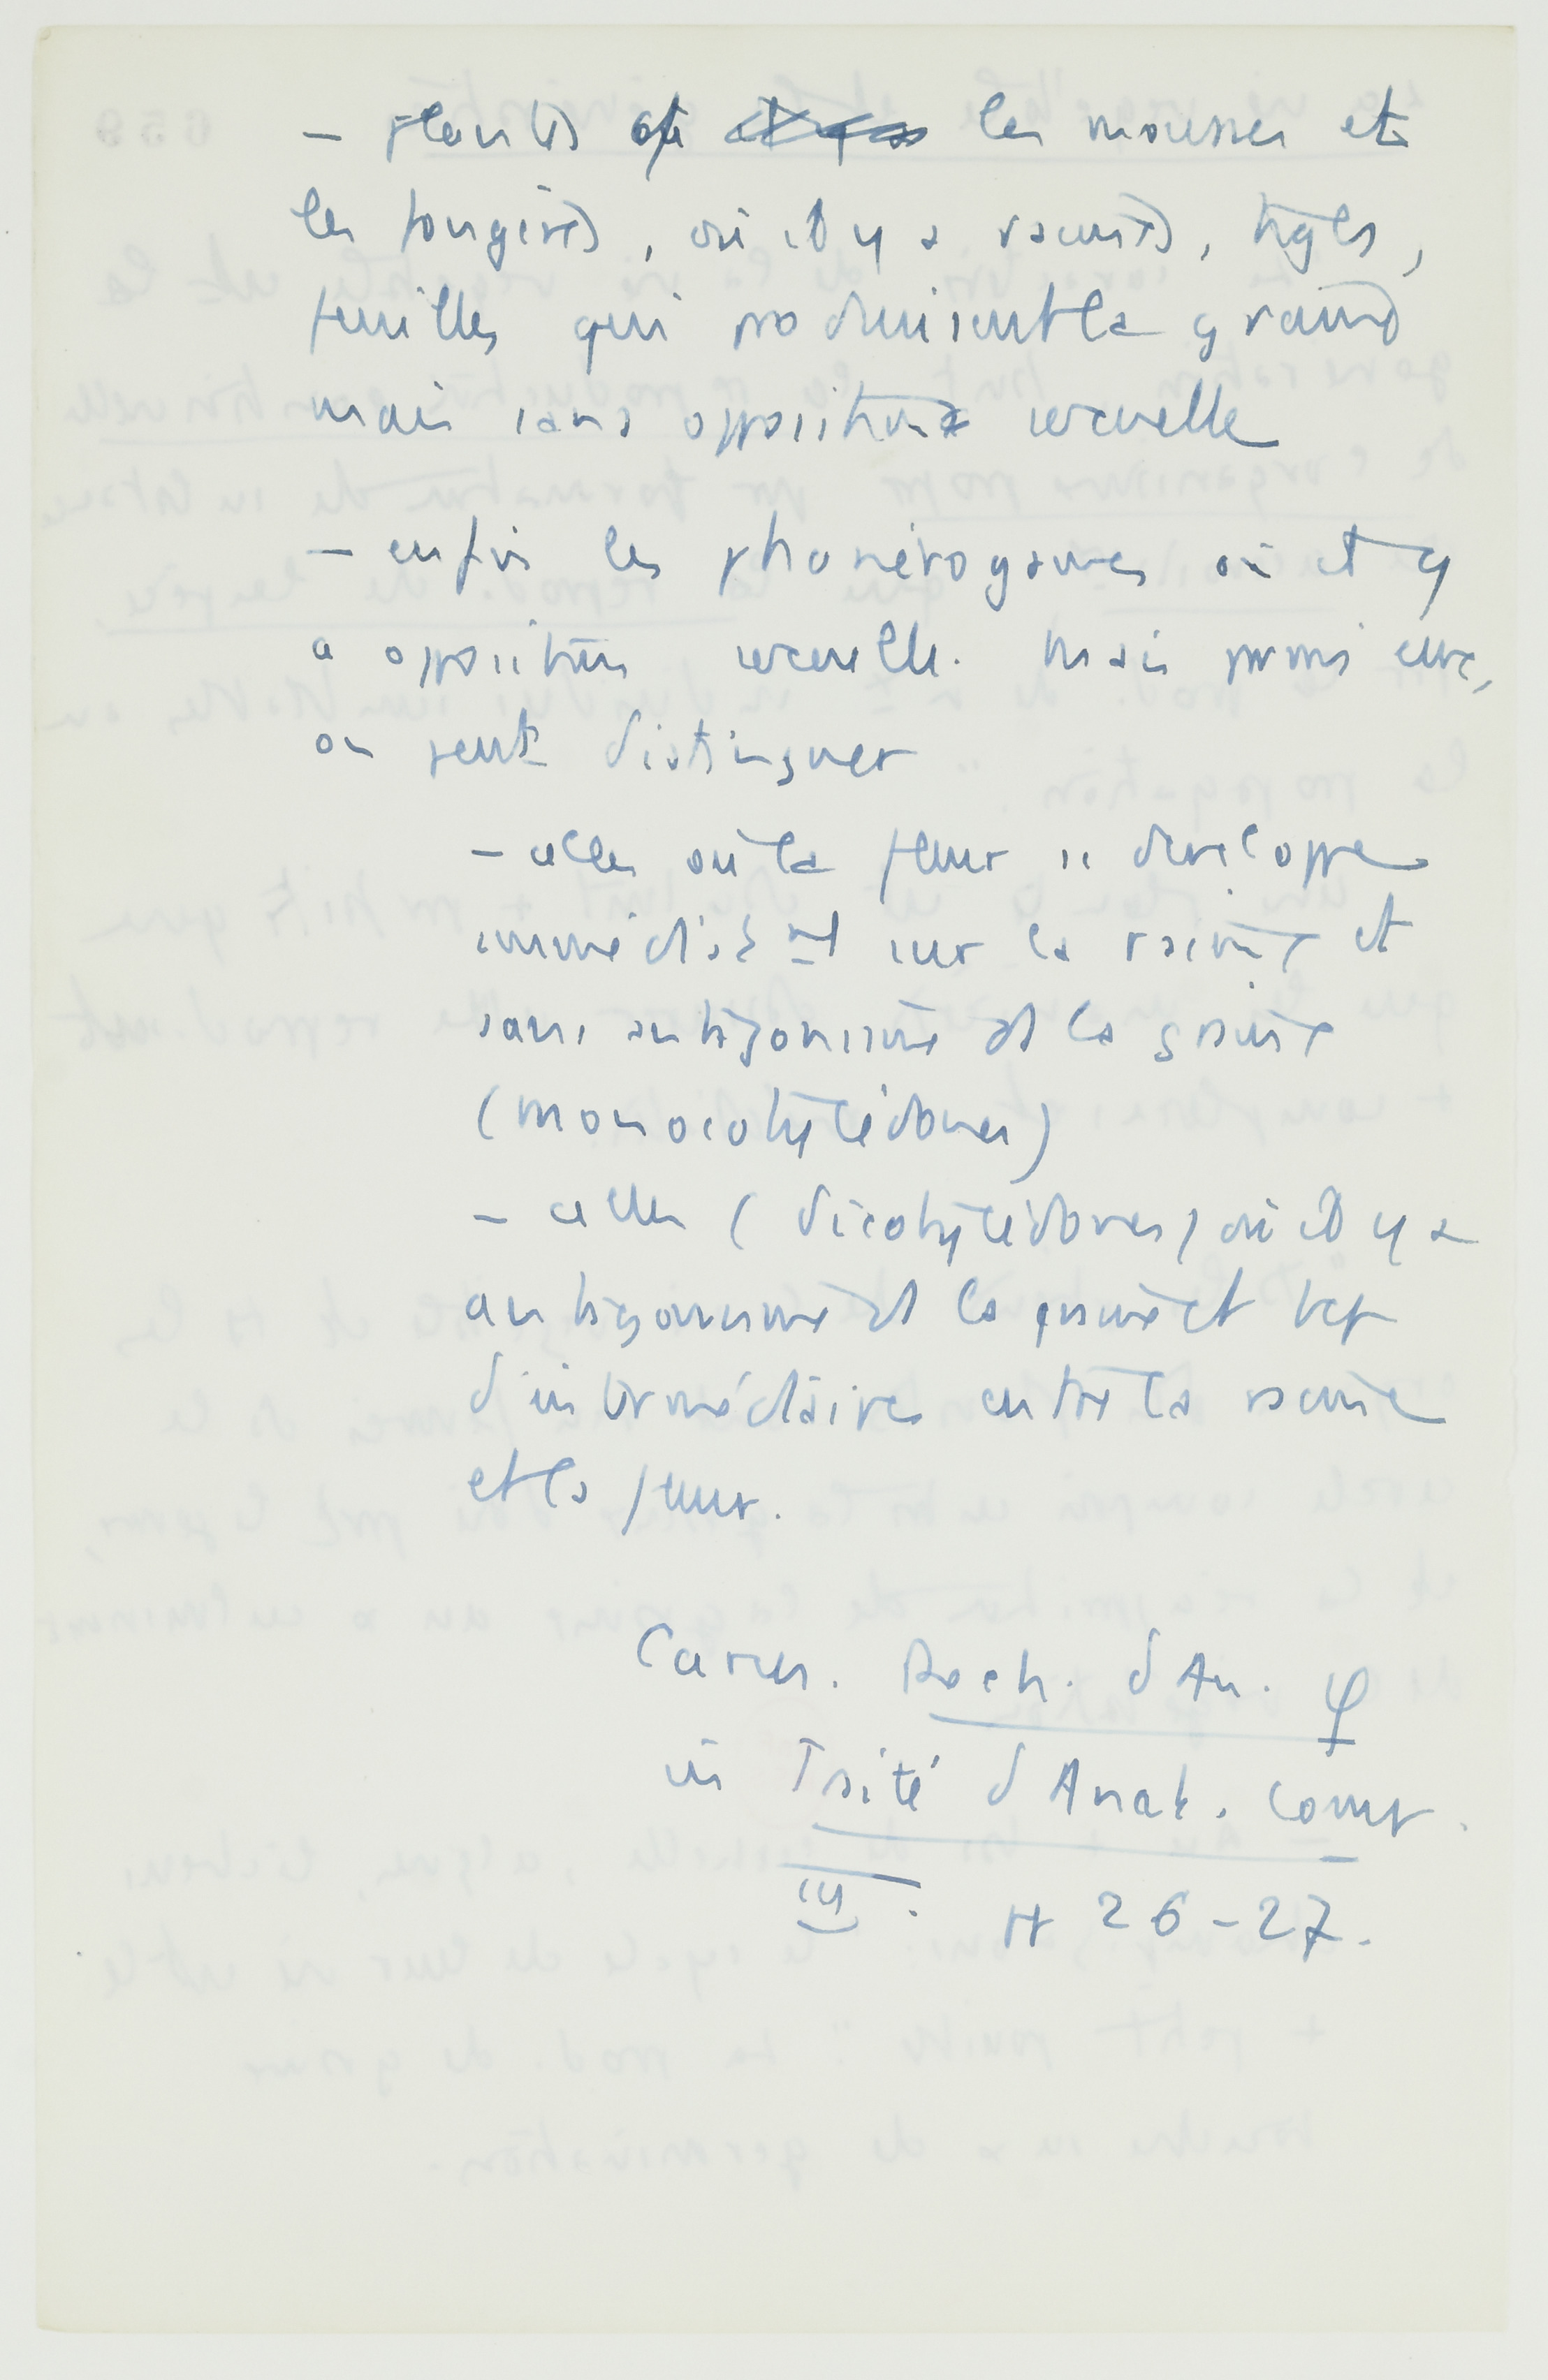 - plantes les mousses et
les fougères, où il y a racines, tiges,
feuilles qui produisent la graine
mais sans opposition sexuelle
- enfin les phanérogames où il y
a opposition sexuelle. Mais parmi eux,
on peut distinguer
- celles où la fleur se développe
immédiat mt sur la racine et
sans antagonisme de la graine
(monocotylédones)
- celles (dicotylédones) où il y a
antagonisme de la graine et
d'intermédiaires entre la racine
et la fleur.
Carus. Rech. d'An. φ
in Traité d'Anat. Comp.
III. 26-27.